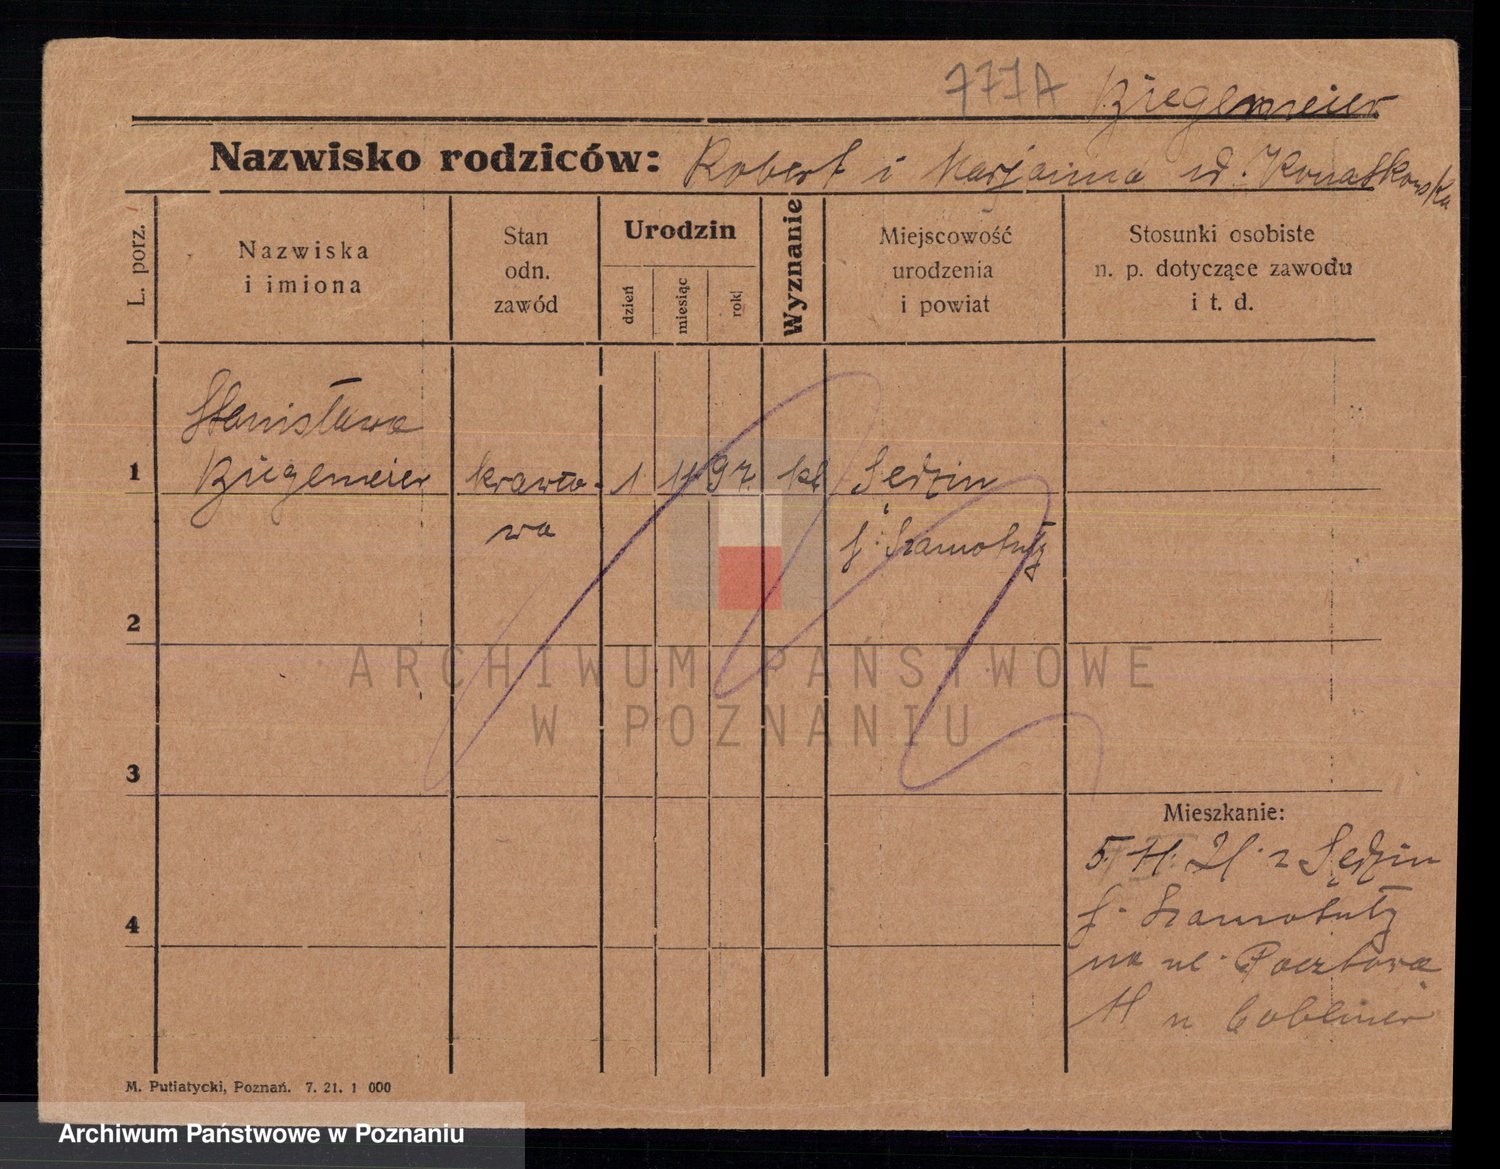 771A Biegemeier
Nazwisko rodziców: Robert i Marjanna
L. porz.
Nazwiska i imiona
Stan odn. zawód
Urodzin
dzień
miesiąc
rok
Wyznanie
Miejscowość urodzenia i powiat
Stosunki osobiste n. p. dotyczące zawodu i t. d.
Stanisława
1 Biegemeier krawco- 1 11 97. kł Sędzin
wa p. Szamotuły
2
3
4
Mieszkanie:
5. 11. 21. z Sędzin
p. Szamotuły
na ul. Pocztowa
11 u
M. Putiatycki, Poznań. 7. 21. 1 000
ARCHIWUM PAŃSTWOWE
W POZNANIU
Archiwum Państwowe w Poznaniu